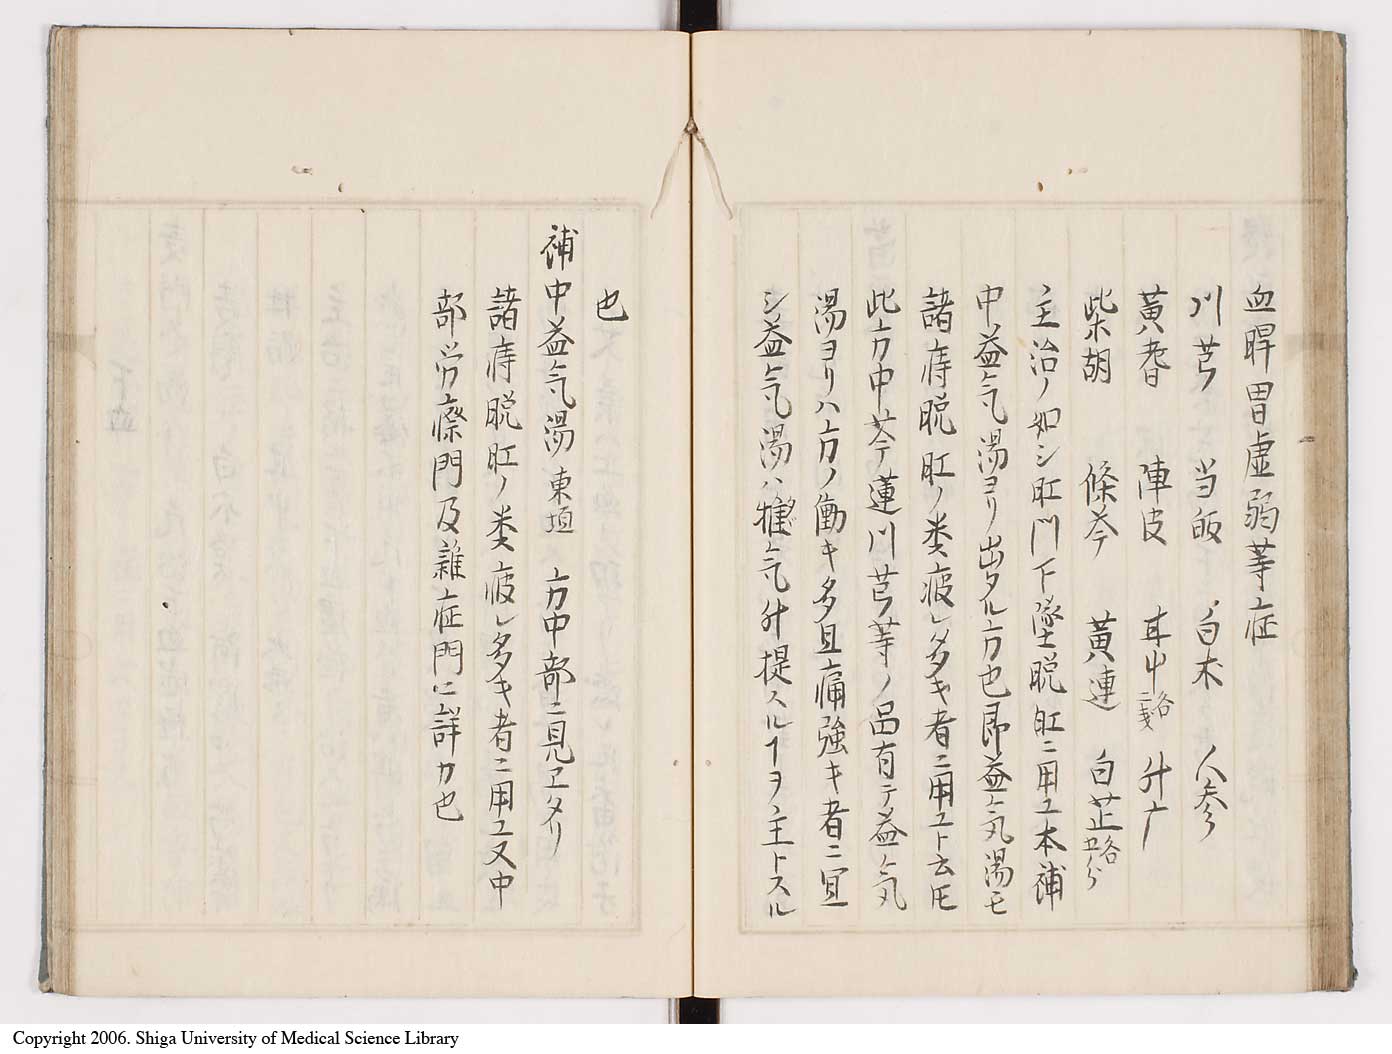 血脾胃虚弱等症
川芎 当皈 白朮 人参
黄耆 陳皮 耳中各一戔 升广
柴胡 條芩 黄連 白芷各五分
主治ノ如シ肛門下墜脱肛ニ用ユ本補
中益气湯ヨリ出タル方也即益气湯モ
諸痔脱肛ノ类疲レ多キ者ニ用ユト云𪜈
此方中芩蓮川芎等ノ品有テ益气
湯ヨリハ方ノ働キ多且痛強キ者ニ冝
シ益气湯ハ惟タダ气升提スルヿヲ主トスル
也
補中益气湯 東垣 方中部ニ見ヱタリ
諸痔脱肛ノ类疲レ多キ者ニ用ユ又中
部労瘵門及雜症門ニ詳カ也
Copyright 2006. Shiga University of Medical Science Library